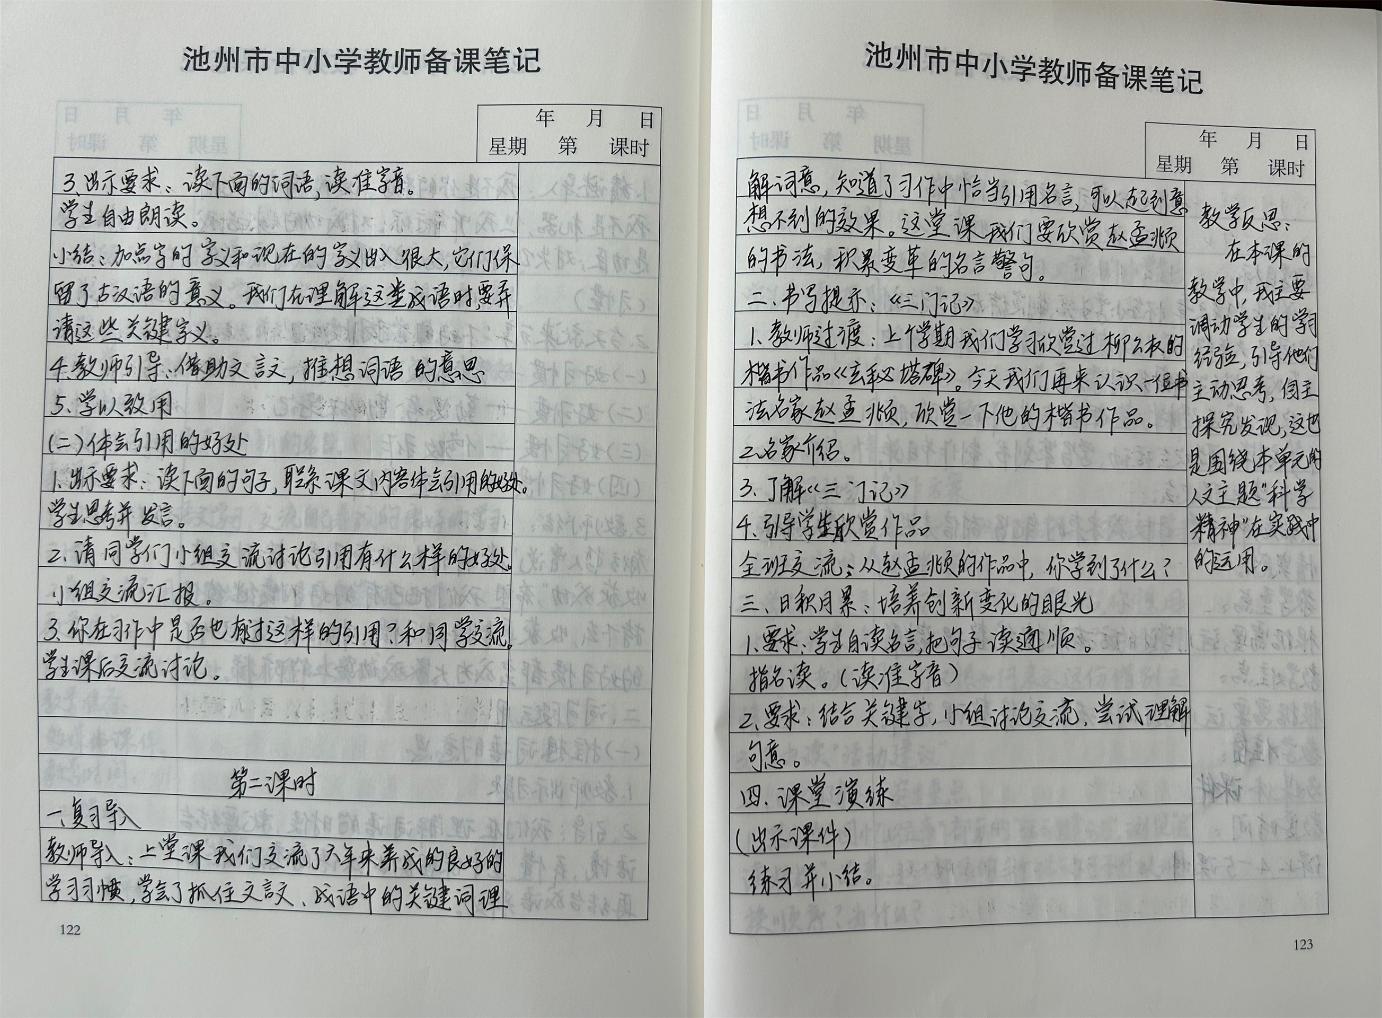 池州市中小学教师备课笔记
年 月 日
星期 第 课时
3.出示要求：读下面的词语，读准字音。
学生自由朗读。
小结：加点字的字义和现在的字义出入很大，它们保
留了古汉语的意义。我们在理解这类成语时，要弄
请这些关键字义。
4.教师引导：借助文言文，推想词语的意思
5.学以致用
(二)体会引用的好处
1.出示要求：读下面的句子，联系课文内容体会引用的好处。
学生思考并发言。
2.请同学们小组交流讨论引用有什么样的好处。
小组交流汇报。
3.你在习作中是否也有过这样的引用？和同学交流。
学生课后交流讨论。
第二课时
一.复习导入
教师导入：上堂课我们交流了六年来养成的良好的
学习习惯，学会了抓住文言文、成语中的关键词理
122
池州市中小学教师备课笔记
年 月 日
星期 第 课时
解词意，知道了习作中恰当引用名言，可以起到意
想不到的效果。这堂课我们要欣赏赵孟頫
的书法，积累变革的名言警句。
二.书写提示：《三门记》
1.教师过渡：上个学期我们学习欣赏过柳公权的
楷书作品《玄秘塔碑》。今天我们再来认识一位书
法名家赵孟頫，欣赏一下他的楷书作品。
2.名家介绍。
3.了解《三门记》
4.引导学生欣赏作品
全班交流：从赵孟頫的作品中，你学到了什么？
三.日积月累：培养创新变化的眼光
1.要求：学生自读名言，把句子读通顺。
指名读。(读准字音)
2.要求：结合关键字，小组讨论交流，尝试理解
句意。
四.课堂演练
(出示课件)
练习并小结。
教学反思：
在本课的
教学中，我主要
调动学生的学习
经验，引导他们
主动思考，自主
探究发现，这也
是围绕本单元的
人文主题“科学
精神”在实践中
的运用。
123